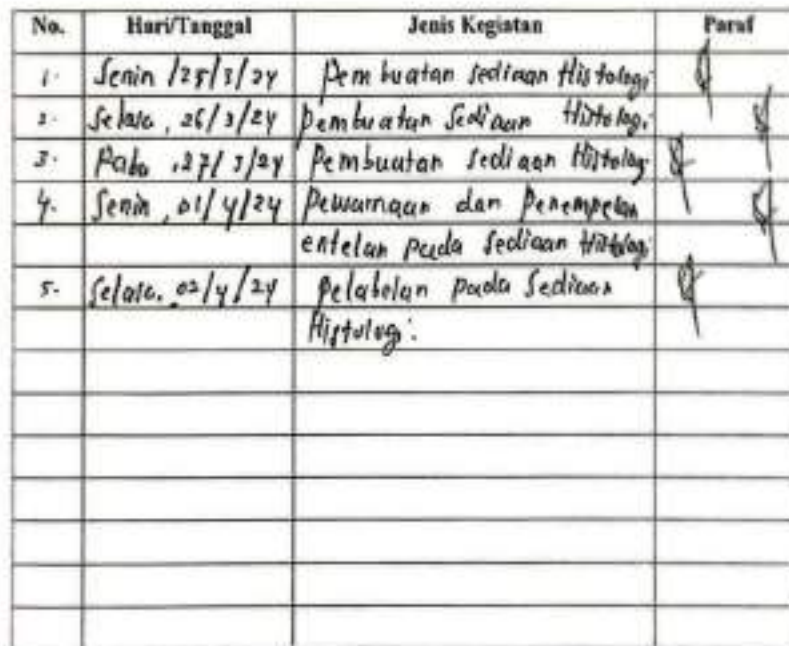 No. Hari/Tanggal Jenis Kegiatan Paraf
1. Senin /25/3/24 Pembuatan sediaan Histologi
2. Selasa, 26/3/24 Pembuatan Sediaan Histologi
3. Rabu, 27/3/24 Pembuatan sediaan Histologi
4. Senin, 01/4/24 Pewarnaan dan Penempelan
entelan pada Sediaan Histologi
5. Selasa, 02/4/24 Pelabelan pada Sediaan
Histologi.